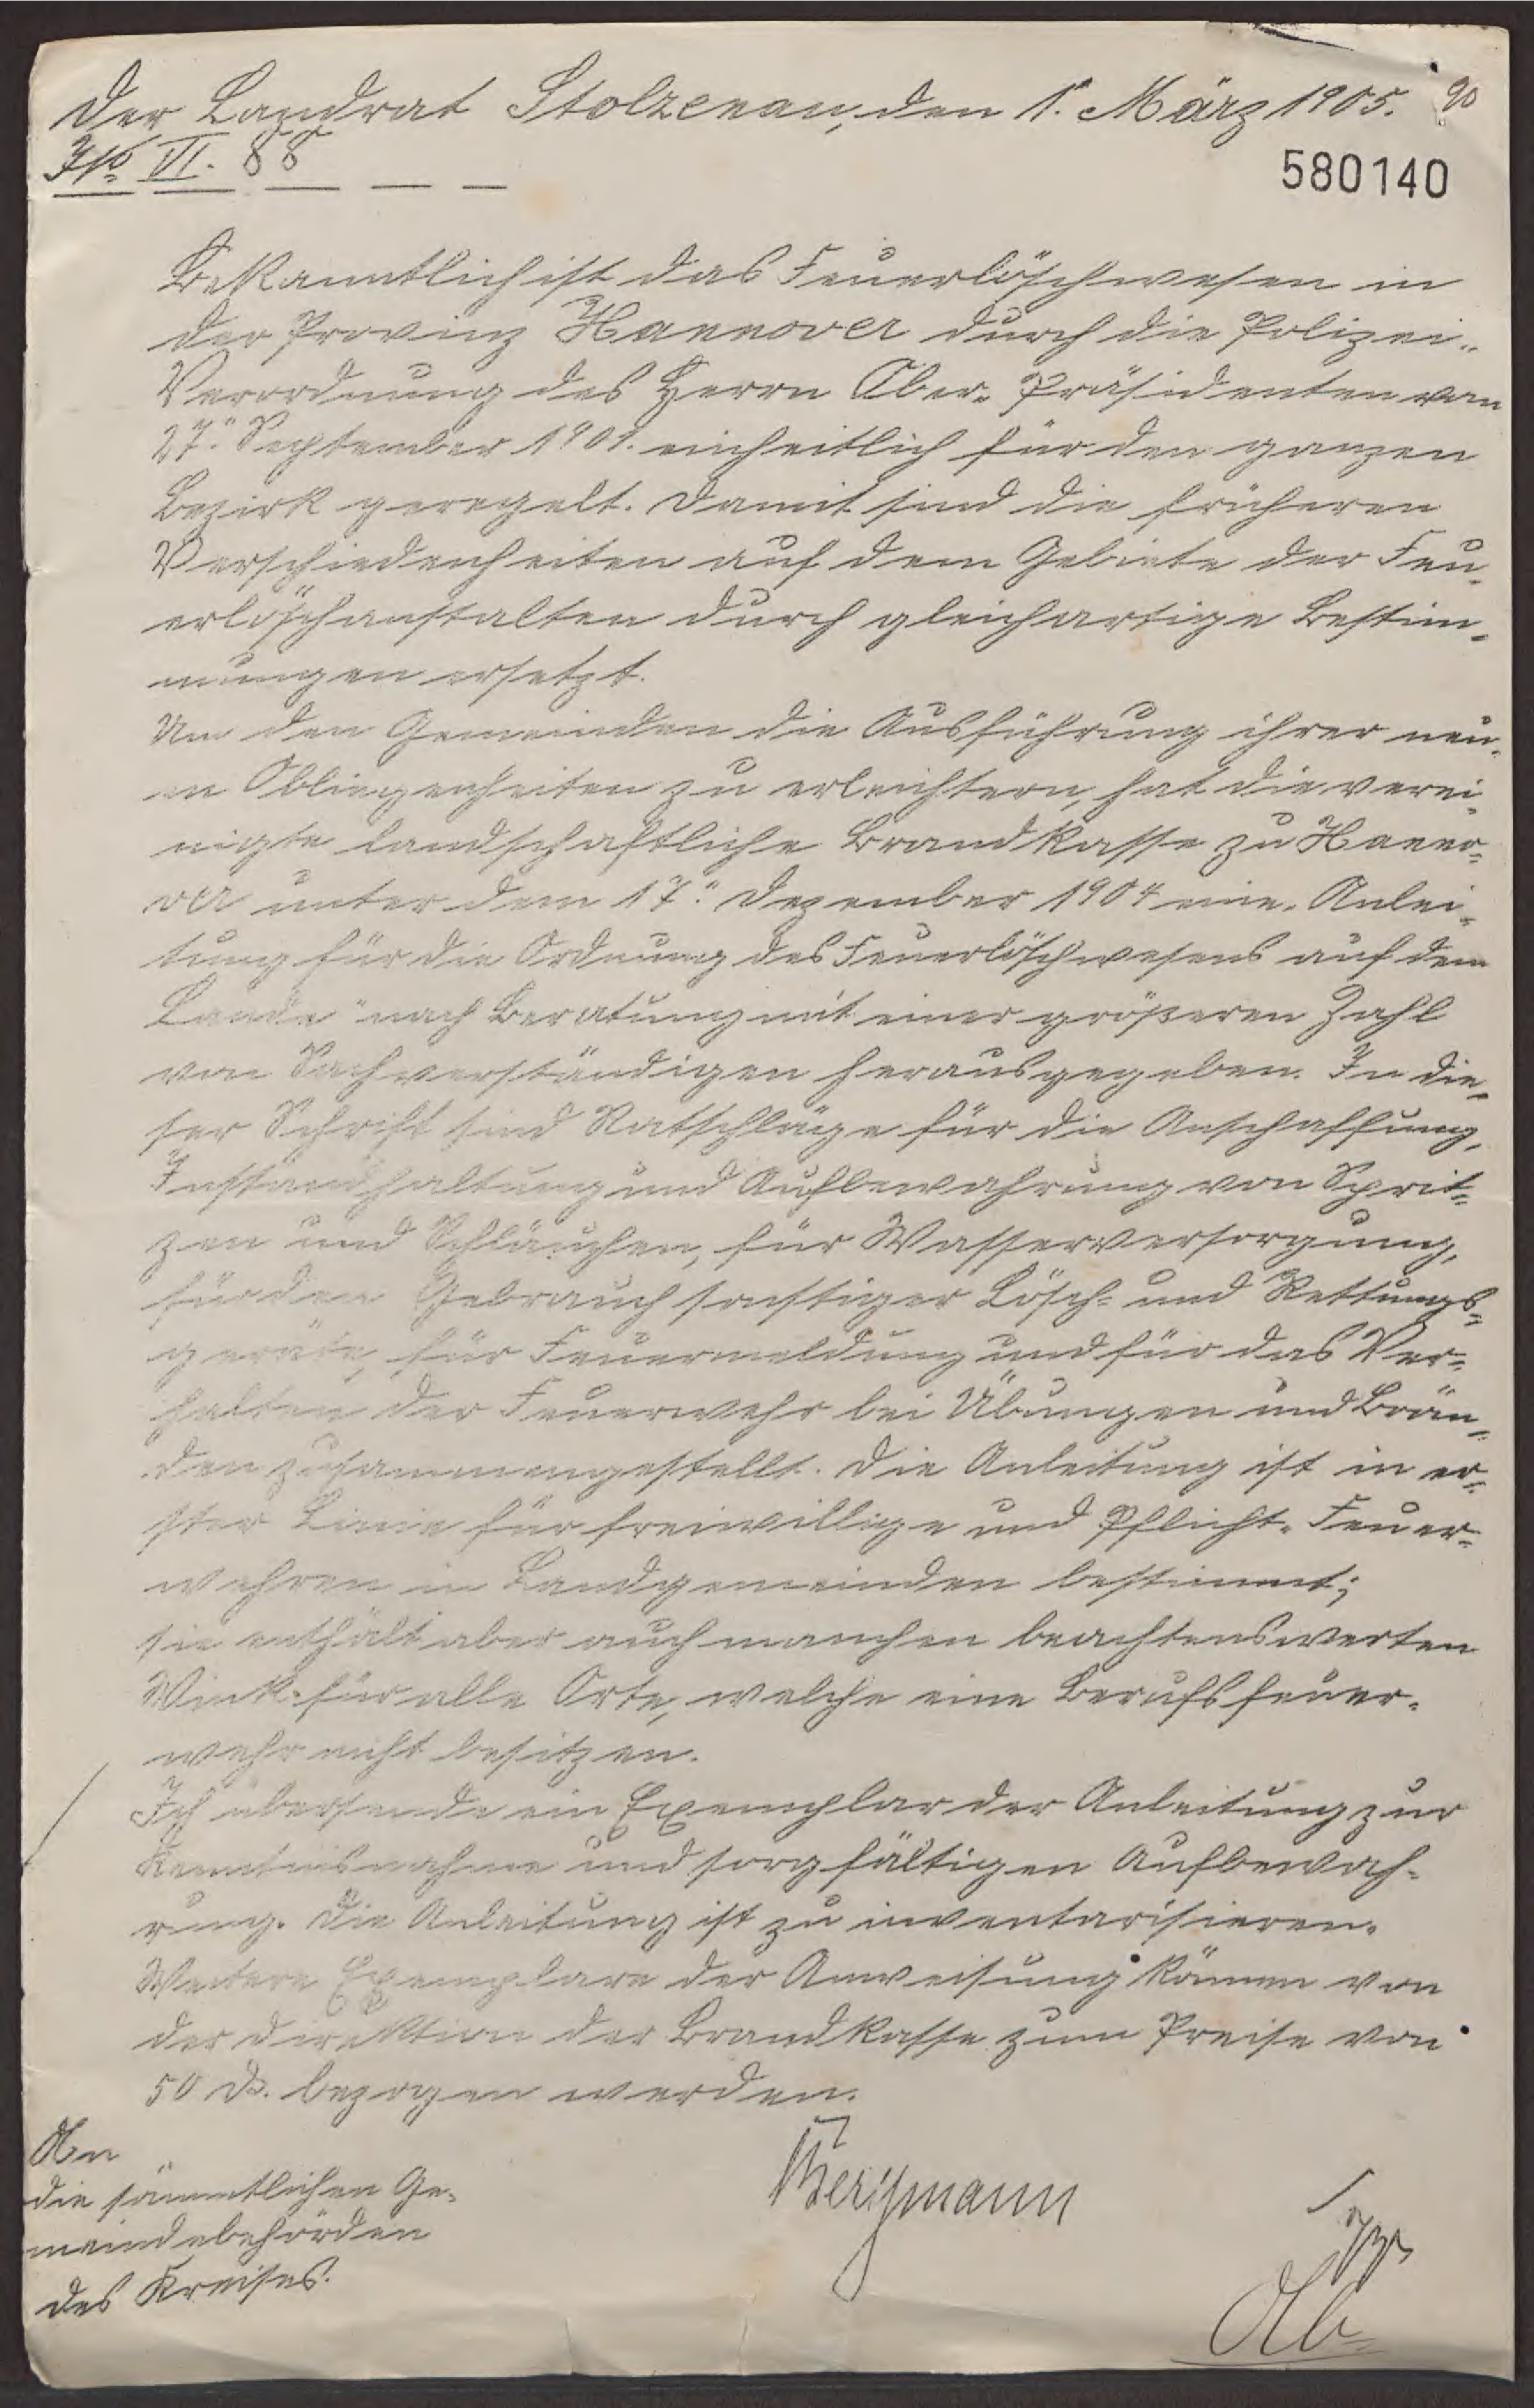 Der Landrat Stolzenau, den 1. März 1905. 90
J№ VI. 88
580140
Bekanntlich ist das Feuerlöschwesen in
der Provinz Hannover durch die Polizei-
Verordnung des Herrn Ober-Präsidenten vom
27. September 1901. einheitlich für den ganzen
Bezirk geregelt. Damit sind die früheren
Verschiedenheiten auf dem Gebiete der Feu-
erlöschanstalten durch gleichartige Bestim-
mungen ersetzt.
Um den Gemeinden die Ausführung ihrer neu-
en Obliegenheiten zu erleichtern, hat die verei-
nigte landschaftliche Brandkasse zu Hanno-
ver unter dem 17. Dezember 1904 eine „Anlei-
tung für die Ordnung des Feuerlöschwesens auf dem
Lande" nach Beratung mit einer größeren Zahl
von Sachverständigen herausgegeben. In die-
ser Schrift sind Ratschläge für die Anschaffung,
Instandhaltung und Aufbewahrung von Sprit-
zen und Schläuchen, für Wasserversorgung,
für den Gebrauch sonstiger Lösch- und Rettungs-
geräte, für Feuermeldung und für das Ver-
halten der Feuerwehr bei Übungen und Brän-
den zusammengestellt. Die Anleitung ist in er-
ster Linie für freiwillige und Pflicht-Feuer-
wehren in Landgemeinden bestimmt;
sie enthält aber auch manchen beachtenswerten
Wink für alle Orte, welche eine Berufsfeuer-
wehr nicht besitzen.
Ich übersende ein Exemplar der Anleitung zur
Kenntnisnahme und sorgfältigen Aufbewah-
rung. Die Anleitung ist zu inventarisieren.
Weitere Exemplare der Anweisung können von
der Direktion der Brandkasse zum Preise von
50 d. bezogen werden.
An
die sämmtlichen Ge-
meindebehörden
des Kreises.
Bergmann